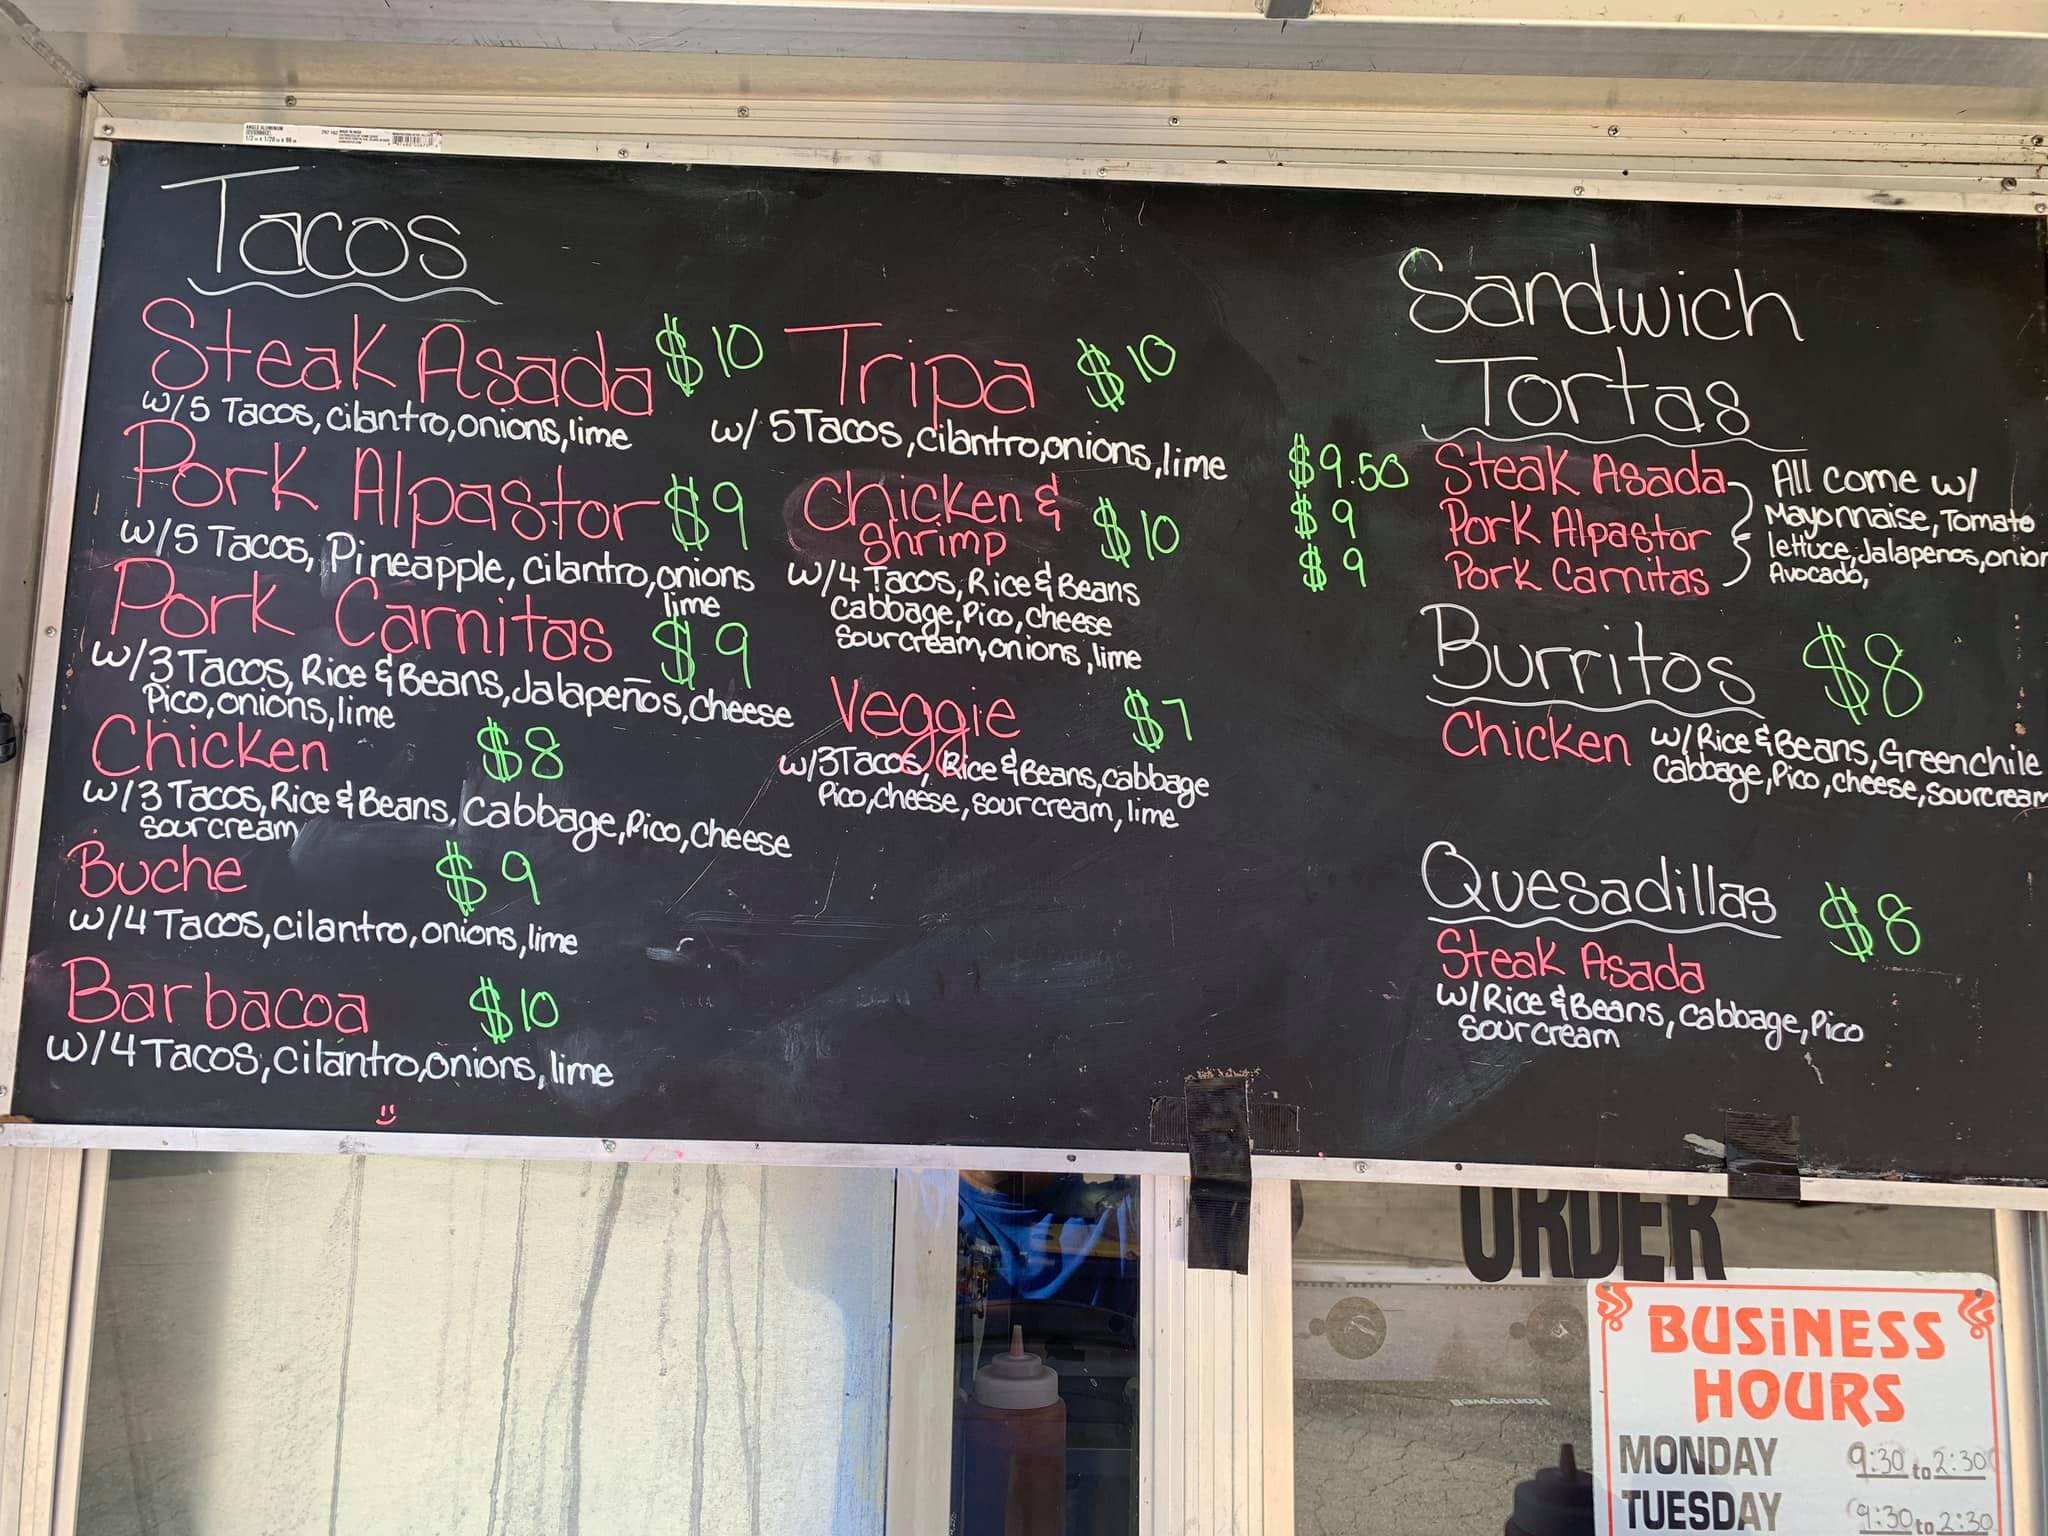 Tacos
Steak Asada $10
w/5 Tacos, cilantro, onions, lime
Pork Alpastor $9
w/5 Tacos, Pineapple, cilantro, onions
lime
Pork Carnitas $9
w/3 Tacos, Rice & Beans, Jalapeños, cheese
Pico, onions, lime
Chicken $8
w/3 Tacos, Rice & Beans, Cabbage, Pico, cheese
sourcream
Buche $9
w/4 Tacos, cilantro, onions, lime
Barbacoa $10
w/4 Tacos, cilantro, onions, lime
Tripa $10
w/ 5 Tacos, cilantro, onions, lime
Chicken &
Shrimp $10
w/4 Tacos, Rice & Beans
Cabbage, Pico, cheese
sourcream, onions, lime
Veggie $7
w/3Tacos, Rice & Beans, cabbage
Pico, cheese, sourcream, lime
Sandwich
Tortas
$9.50 Steak Asada
$9 Pork Alpastor
$9 Pork Carnitas
All come w/
Mayonnaise, Tomato
lettuce, Jalapenos, onion
Avocado,
Burritos $8
Chicken w/Rice & Beans, Greenchile
Cabbage, Pico, cheese, sourcream
Quesadillas $8
Steak Asada
w/Rice & Beans, Cabbage, Pico
sourcream
ORDER
BUSiNESS
HOURS
MONDAY 9:30 to 2:30
TUESDAY 9:30 to 2:30
Honeywell